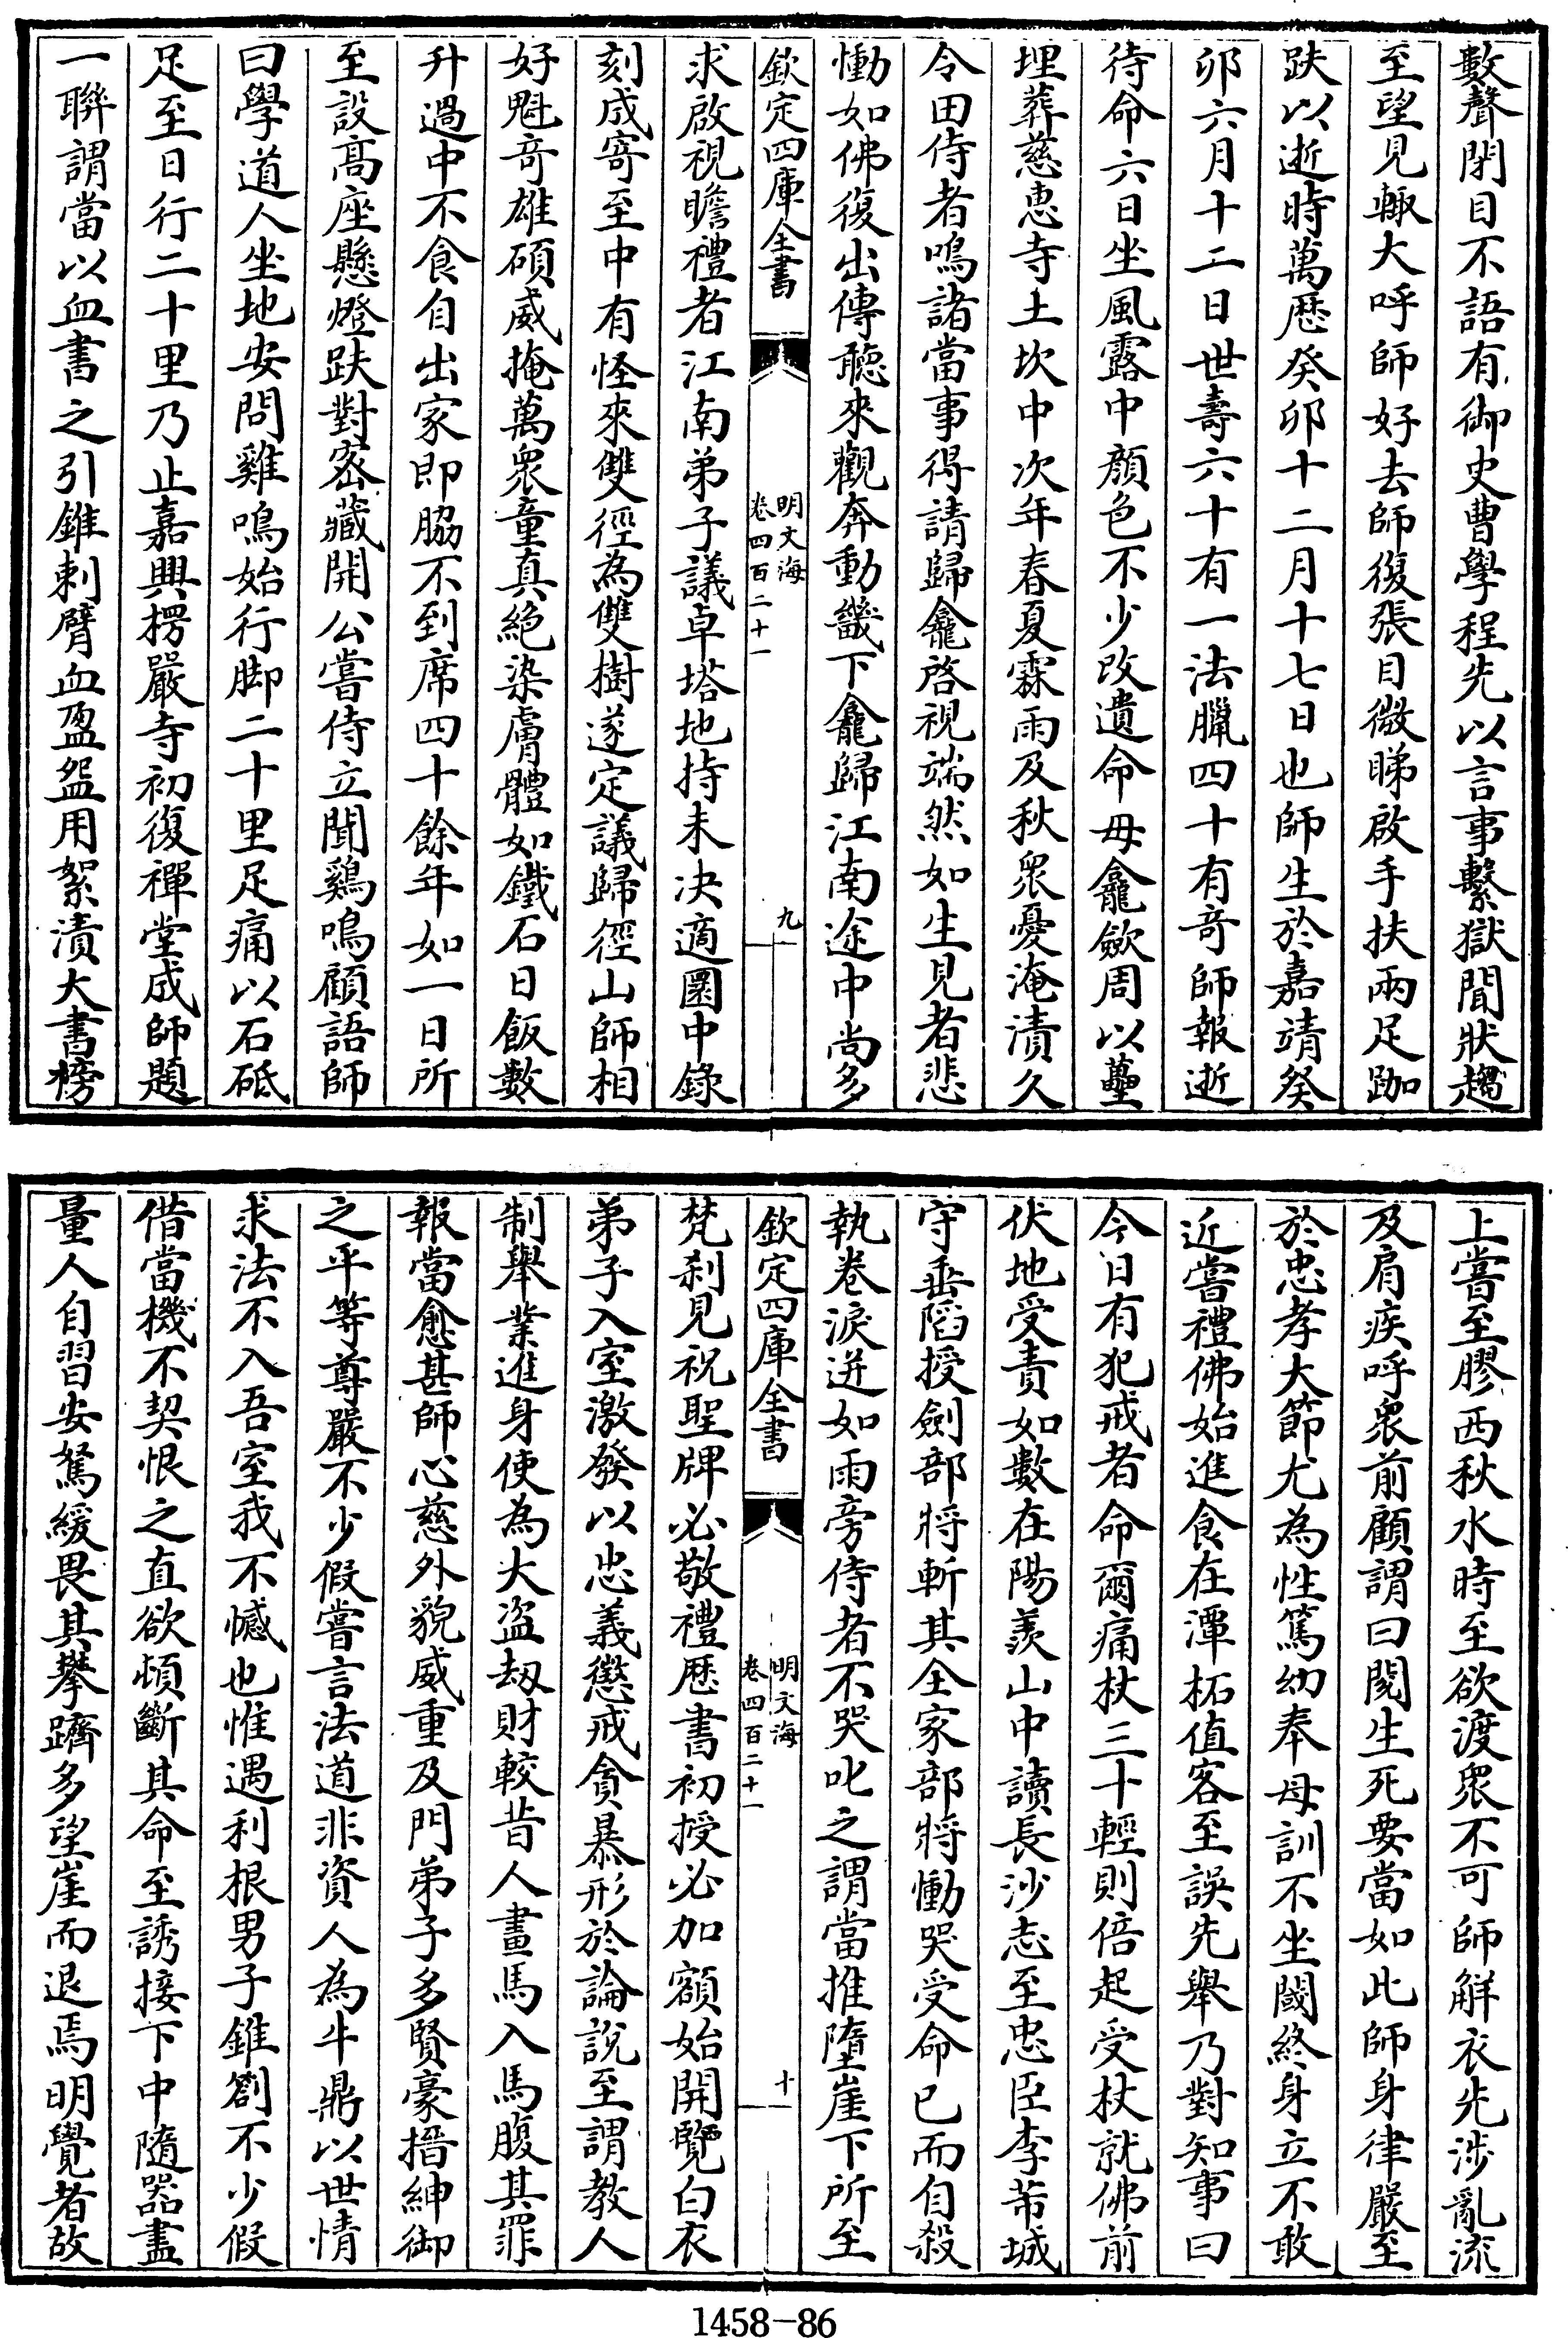 數聲閉目不語有御史曹學程先以言事繫獄聞狀趨
至望見輙大呼師好去師復張目微睇啟手扶兩足跏
趺以逝時萬厯癸卯十二月十七日也師生於嘉靖癸
卯六月十二日世壽六十有一法臘四十有竒師報逝
待命六日坐風露中顔色不少改遺命毋龕歛周以藁
埋葬慈惠寺土坎中次年春夏霖雨及秋衆憂淹漬久
令田侍者鳴諸當事得請歸龕啓視端然如生見者悲
慟如佛復出傳聽來觀奔動畿下龕歸江南途中尚多
欽定四庫全書
明文海
卷四百二十一
九
求啟視瞻禮者江南弟子議卓塔地持未决適圜中錄
刻成寄至中有怪來雙徑為雙樹遂定議歸徑山師相
好魁竒雄碩威掩萬衆童真絶染膚體如鐵石日飯數
升過中不食自出家即脇不到席四十餘年如一日所
至設髙座懸燈趺對宻藏開公嘗侍立聞鷄鳴顧語師
曰學道人坐地安問雞鳴始行脚二十里足痛以石砥
足至日行二十里乃止嘉興楞嚴寺初復禪堂成師題
一聯謂當以血書之引錐刺臂血盈盌用絮漬大書榜
上嘗至膠西秋水時至欲渡衆不可師解衣先涉亂流
及肩疾呼衆前顧謂曰閱生死要當如此師身律嚴至
於忠孝大節尤為性篤幼奉母訓不坐閾終身立不敢
近嘗禮佛始進食在潭柘值客至誤先舉乃對知事曰
今日有犯戒者命爾痛杖三十輕則倍起受杖就佛前
伏地受責如數在陽羨山中讀長沙志至忠臣李芾城
守垂陷授劍部將斬其全家部將慟哭受命已而自殺
執卷淚迸如雨旁侍者不哭叱之謂當推墮崖下所至
欽定四庫全書
明文海
卷四百二十一
十
梵刹見祝聖牌必敬禮厯書初授必加額始開覽白衣
弟子入室激發以忠義懲戒貪暴形於論說至謂教人
制舉業進身使為大盜刼財較昔人畫馬入馬腹其罪
報當愈甚師心慈外貌威重及門弟子多賢豪搢紳御
之平等尊嚴不少假嘗言法道非資人為牛鼎以世情
求法不入吾室我不憾也惟遇利根男子錐劄不少假
借當機不契恨之直欲頓斷其命至誘接下中隨器盡
量人自習安駑緩畏其攀躋多望崖而退焉明覺者故
1458-86